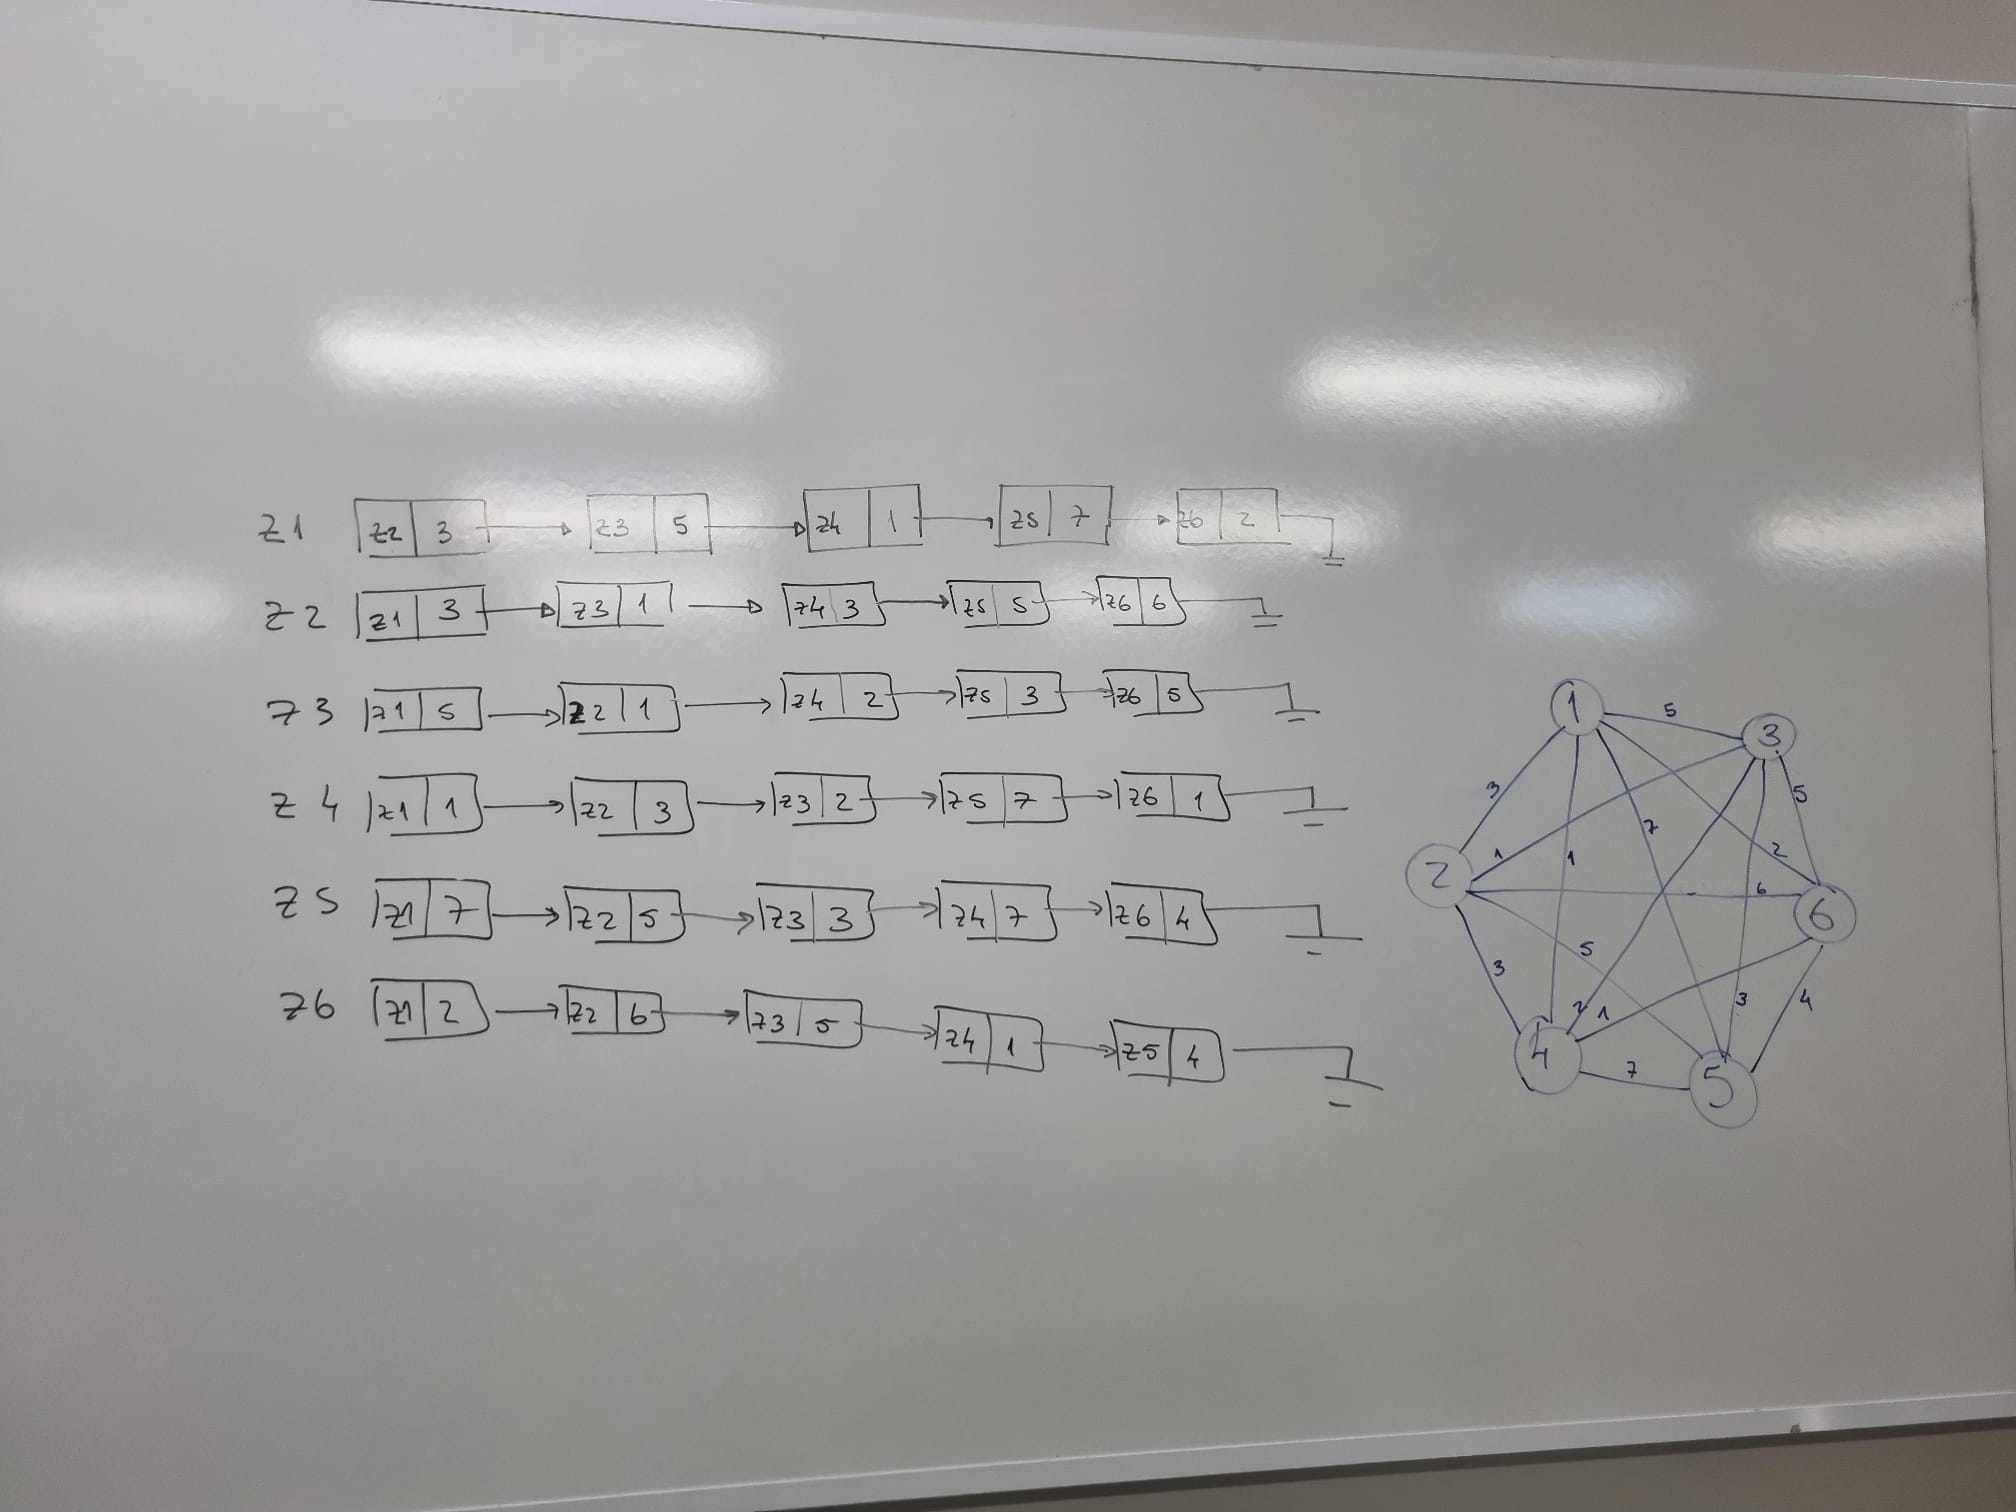 Z1 z2 3 z3 5 z4 1 z5 7 z6 2
Z2 z1 3 z3 1 z4 3 z5 5 z6 6
Z3 z1 5 z2 1 z4 2 z5 3 z6 5
Z4 z1 1 z2 3 z3 2 z5 7 z6 1
Z5 z1 7 z2 5 z3 3 z4 7 z6 4
Z6 z1 2 z2 6 z3 5 z4 1 z5 4
1
5
3
3
5
7
1
1
2
2
6
6
5
3
2
1
3
4
4
7
5